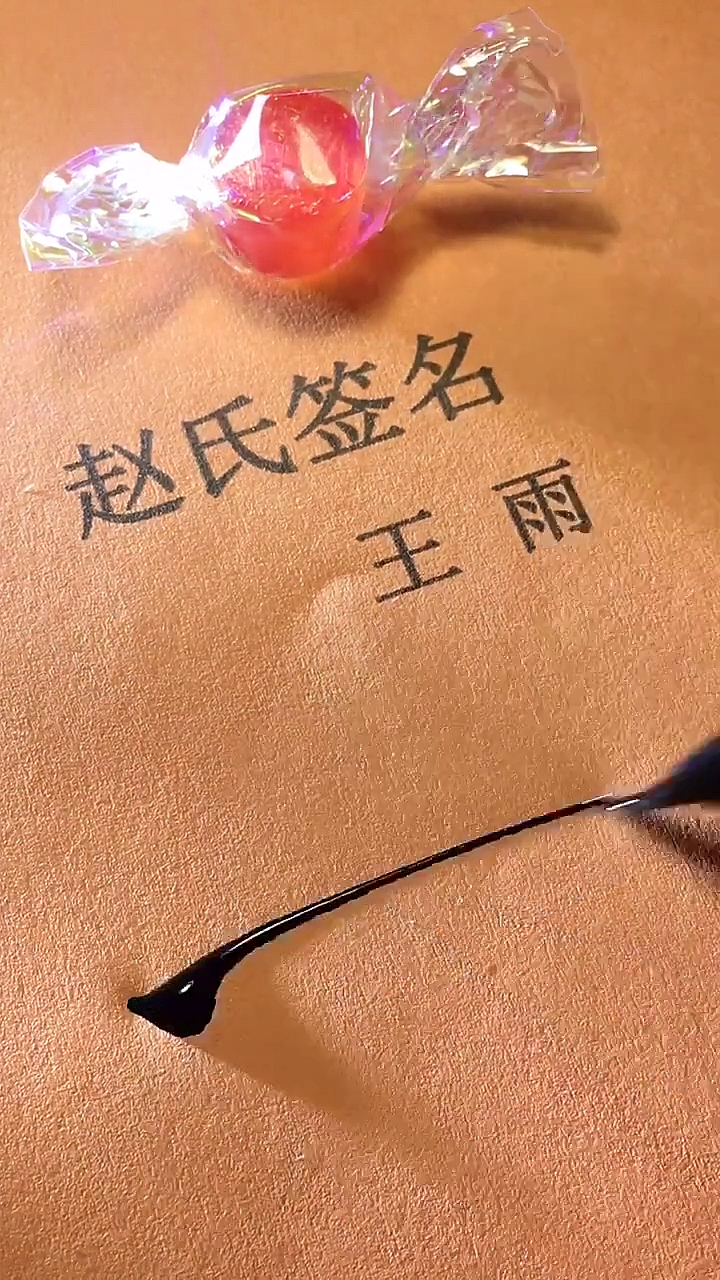 赵氏签名
王雨